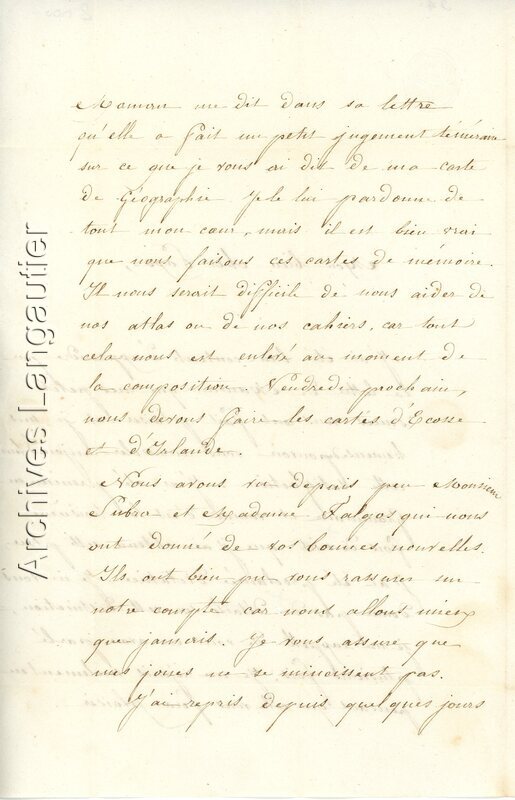 Maman me dit dans sa lettre
qu'elle a fait un petit jugement téméraire
sur ce que je vous ai dit de ma carte
de Géographie. Je le lui pardonne de
tout mon cœur, mais il est bien vrai
que nous faisons ces cartes de mémoire.
Il nous serait difficile de nous aider de
nos atlas ou de nos cahiers, car tout
cela nous est enlevé au moment de
la composition. Vendredi prochain,
nous devons faire les cartes d'Ecosse
et d'Irlande.
Nous avons vu depuis peu Monsieur
et Madame Falgos qui nous
ont donné de vos bonnes nouvelles.
Ils ont bien pu vous rassurer sur
notre compte car nous allons mieux
que jamais. Je vous assure que
mes joues ne se mincissent pas.
J'ai repris depuis quelques jours
Archives Langautier